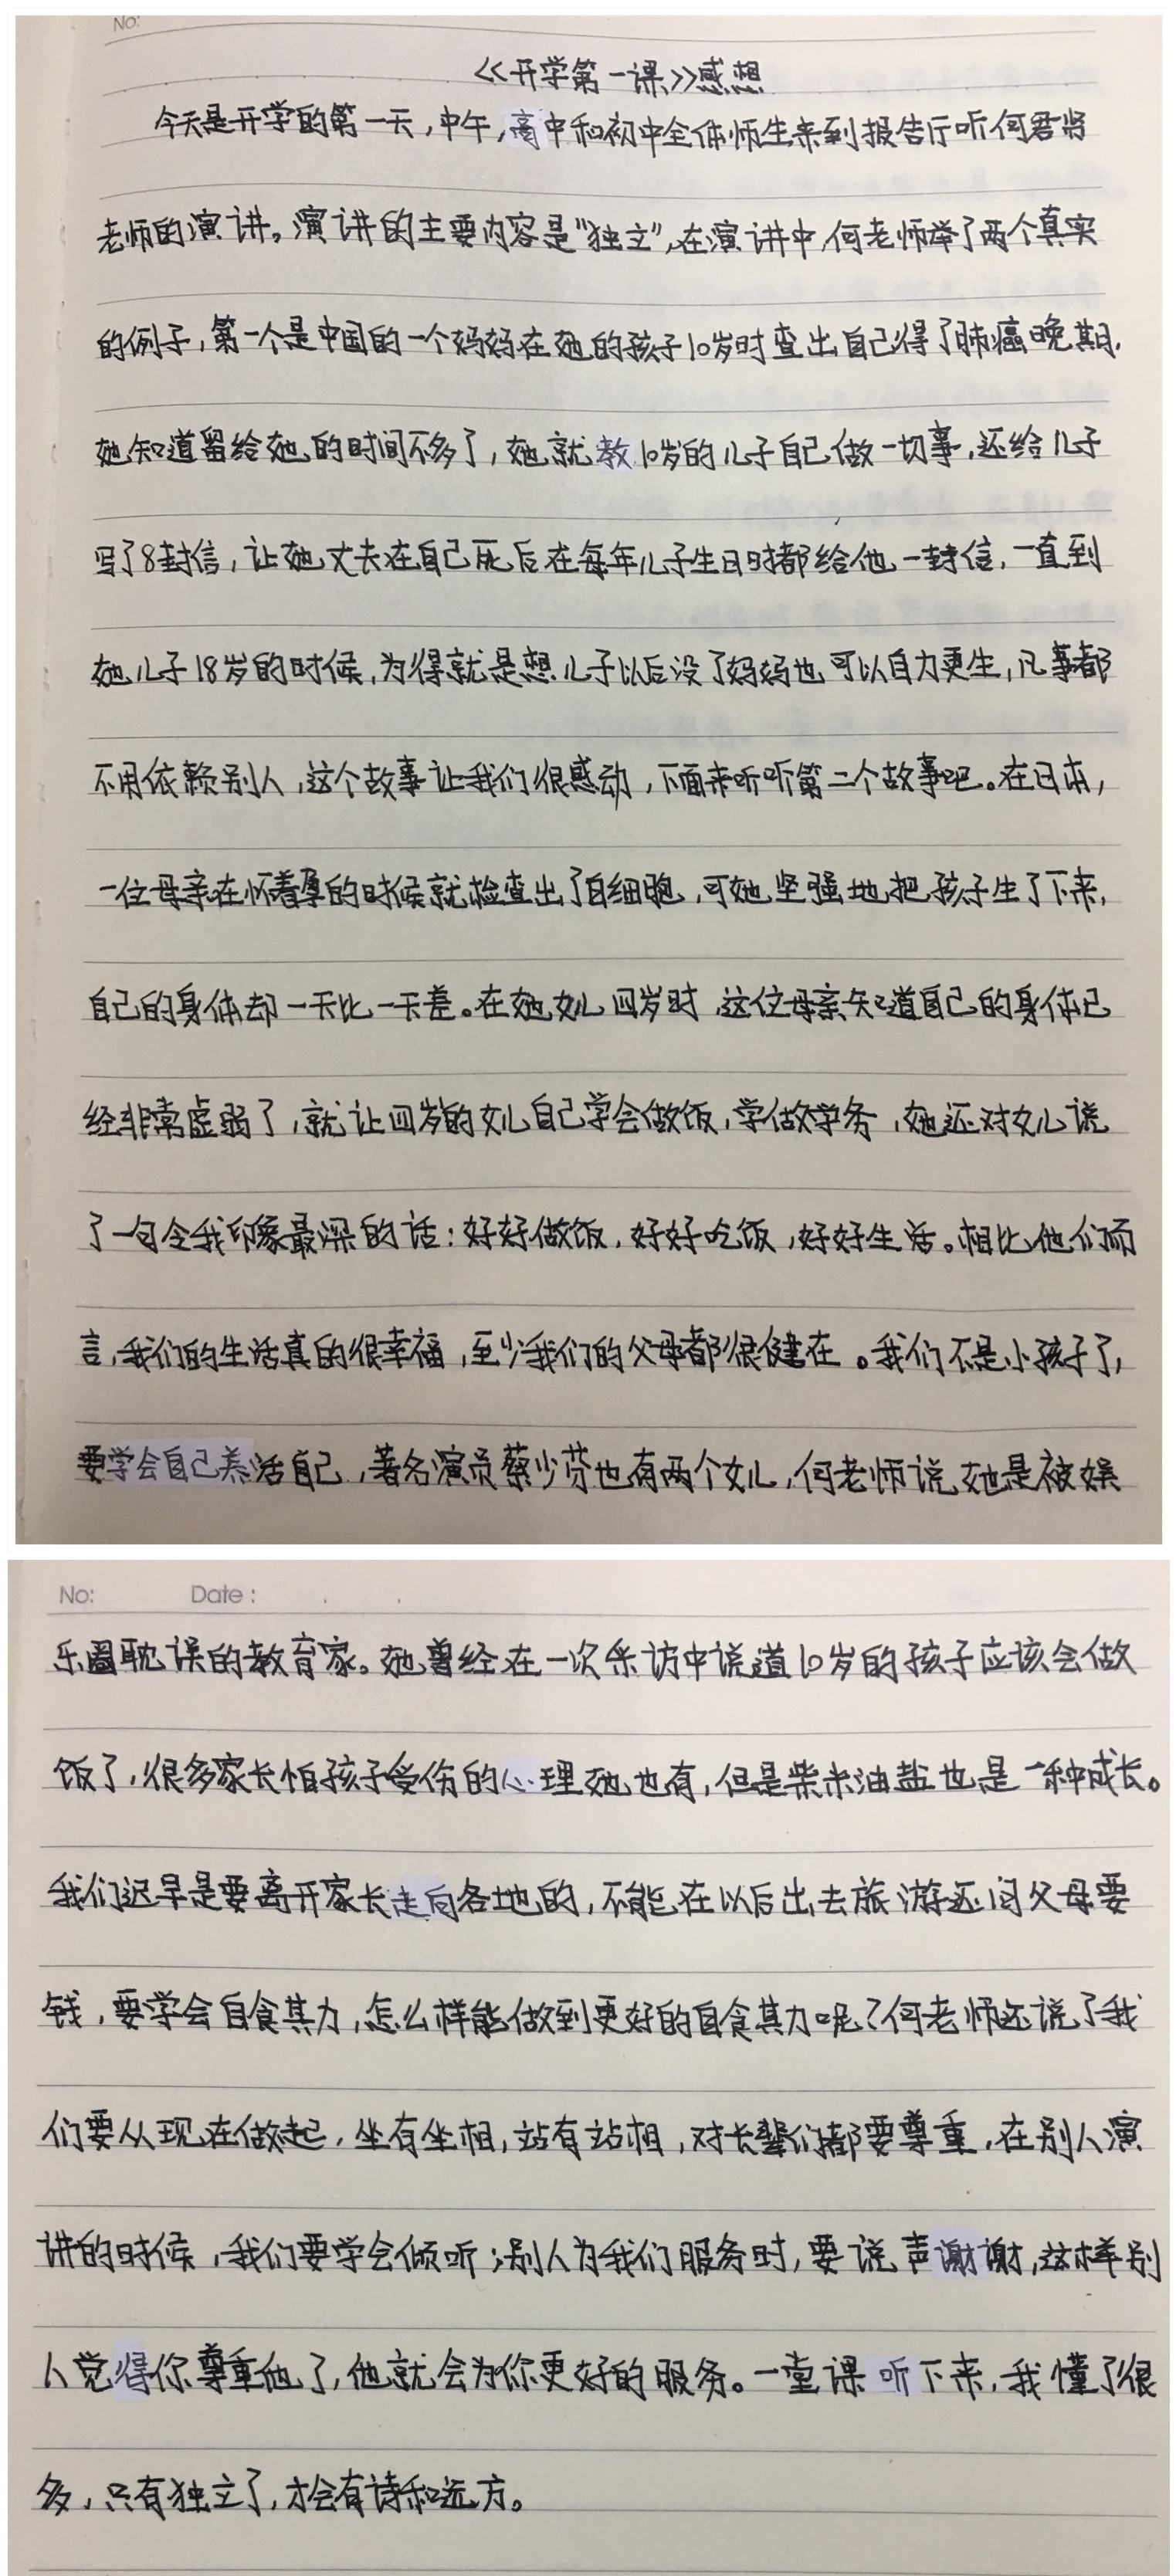 No:
《开学第一课》感想
今天是开学的第一天,中午,高中和初中全体师生来到报告厅听何君将
老师的演讲。演讲的主要内容是"独立",在演讲中,何老师举了两个真实
的例子,第一个是中国的一个妈妈在她的孩子10岁时查出自己得了肺癌晚期,
她知道留给她的时间不多了,她就教10岁的儿子自己做一切事,还给儿子
写了8封信,让她丈夫在自己死后在每年儿子生日时都给他一封信,一直到
她儿子18岁的时候,为得就是想儿子以后没了妈妈也可以自力更生,凡事都
不用依赖别人,这个故事让我们很感动,下面来听听第二个故事吧。在日本,
一位母亲在怀着孕的时候就检查出了白细胞,可她坚强地把孩子生了下来,
自己的身体却一天比一天差。在她女儿四岁时,这位母亲知道自己的身体已
经非常虚弱了,就让四岁的女儿自己学会做饭,学做学务,她还对女儿说
了一句令我印象最深的话:好好做饭,好好吃饭,好好生活。相比他们而
言,我们的生活真的很幸福,至少我们的父母都很健在。我们不是小孩子了,
要学会自己养活自己,著名演员蔡少芬也有两个女儿,何老师说她是被娱
No: Date: . .
乐圈耽误的教育家。她曾经在一次采访中说道10岁的孩子应该会做
饭了,很多家长怕孩子受伤的心理她也有,但是柴米油盐也是一种成长。
我们迟早是要离开家长走向各地的,不能在以后出去旅游还问父母要
钱,要学会自食其力,怎么样能做到更好的自食其力呢?何老师还说了我
们要从现在做起,坐有坐相,站有站相,对长辈们都要尊重,在别人演
讲的时候,我们要学会倾听;别人为我们服务时,要说声谢谢,这样别
人觉得你尊重他了,他就会为你更好的服务。一堂课听下来,我懂了很
多,只有独立了,才会有诗和远方。